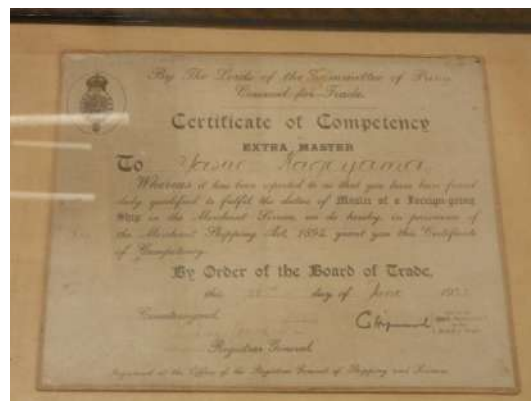 By The Lords of the Committee of Privy
Council for Trade.
Certificate of Competency
EXTRA MASTER
To
Whereas it has been reported to us that you have been found
duly qualified to fulfil the duties of Master of a Foreign-going
Ship in the Merchant Service, we do hereby, in pursuance of
the Merchant Shipping Act, 1894, grant you this Certificate
of Competency.
By Order of the Board of Trade,
this day of June
Countersigned
Registrar General
Registered at the Office of the Registrar General of Shipping and Seamen.